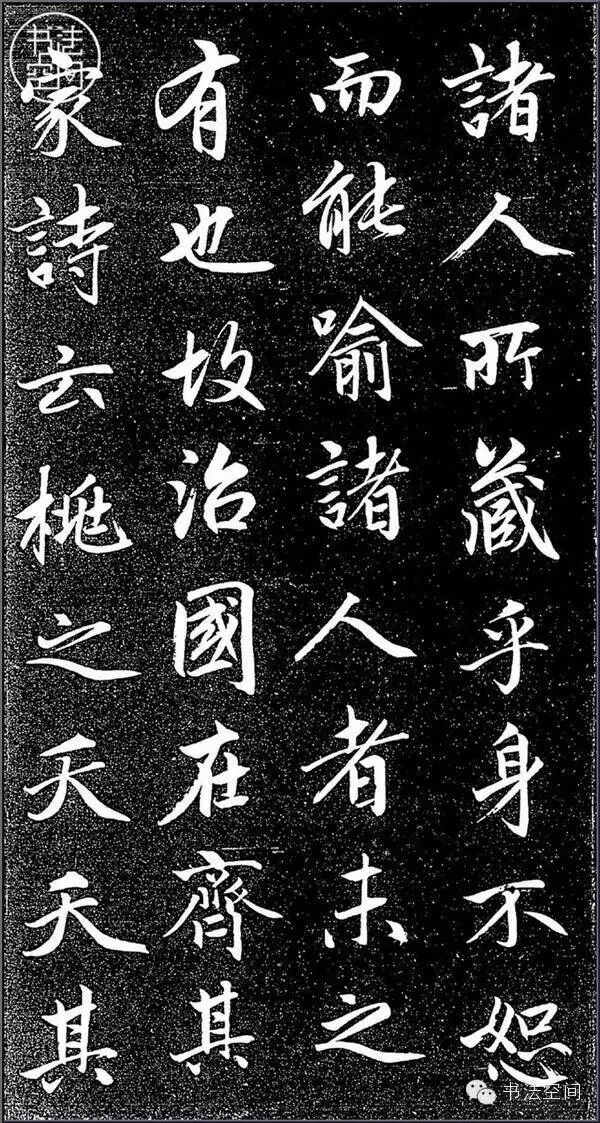 諸人所藏乎身不恕
而能喻諸人者未之
有也故治國在齊其
家詩云桃之夭夭其
书法空间
书法空间